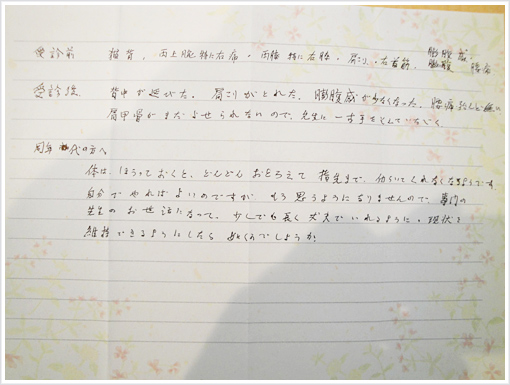 受診前 猫背、両上腕特に右痛、両膝特に右膝、肩こり、右首筋、膨腹感、腰痛
受診後 背中が延びた。肩こりがとれた、膨腹感が少なくなった、腰痛殆んど無い
肩甲骨がまだよせられないので、先生に一寸手をそえていただく。
同年代の方へ
体は、ほうっておくと、どんどんおとろえて指先まで、動いてくれなくなるようです
自分でやればよいのですが、もう思うようになりませんので、専門の
先生のお世話になって、少しでも長く丈夫でいれるように、現状を
維持できるようにしたら如何でしょうか?